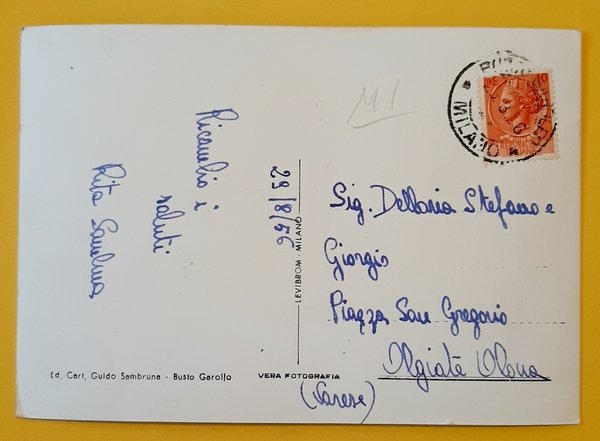 Ricambio i
saluti
Rita
29/8/56
LEVIBROM - MILANO
M1
MILANO
Sig. Dellavia Stefano e
Giorgio
Piazza San Gregorio
Olgiate Olona
(Varese)
Ed. Cart. Guido Sambruna - Busto Garolfo
VERA FOTOGRAFIA